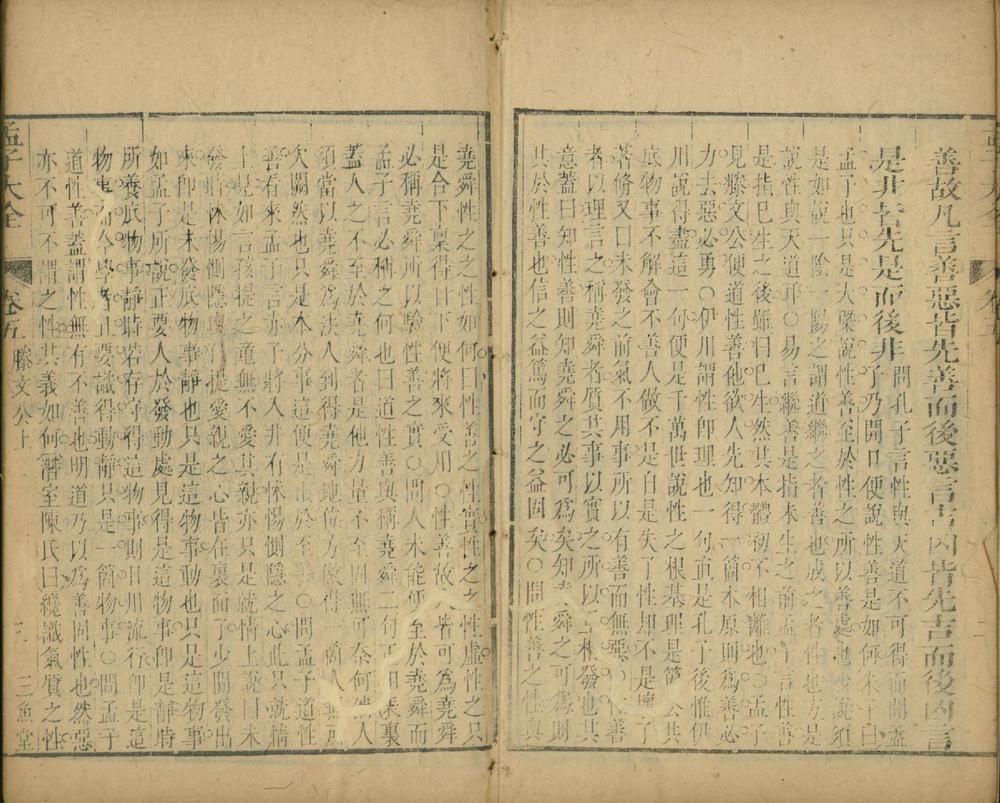 善故凡言善惡皆先善而後惡言吉凶皆先吉而後凶言
是非皆先是而後非 問孔子言性與天道不可得而聞孟
孟子也只是大槩說性善至於性之所以善處也少說須
是如說一陰一陽之謂道繼之者善也成之者性也方是
說性與天道耳○易言繼善是指未生之前孟子言性善
是指已生之後雖曰已生然其本體初不相離也○孟子
見滕文公便道性善他欲人先知得一箇本原則為善必
力去惡必勇○伊川謂性即理也一句直是孔子後惟伊
川說得盡這一句便是千萬世說性之根基理是箇公共
底物事不解會不善人做不是自是失了性却不是壞了
者以理言之稱堯舜者質其事以實之所以互相發也其
意蓋曰知性善則知堯舜之必可為矣知堯舜之可為則
其於性善也信之益篤而守之益固矣○問性善之性與
堯舜性之之性如何曰性善之性實性之之性虛性之只
是合下稟得合下便將來受用○性善故人皆可為堯舜
必稱堯舜所以驗性善之實○問人未能便至於堯舜而
孟子言必稱之何也曰道性善與稱堯舜二句正相表裏
蓋人之不至於堯舜者是他力量不至固無可奈何然人
須當以堯舜為法人到得堯舜地位方做得一箇人無所
欠闕然也只是本分事這便是止於至善○問孟子道性
善看來孟子言赤子將入井有怵惕惻隱之心此只就情
上見如言孩提之童無不愛其親亦只是就情上說曰未
發時怵惕惻隱與孩提愛親之心皆在裏面了少間發出
來即是未發底物事靜也只是這物事動也只是這物事
如孟子所說正要人於發動處見得是這物事即是靜時
所養底物事靜時若存守得這物事則日用流行即是這
物事而今學者且要識得動靜只是一箇物事○問孟子
道性善蓋謂性無有不善也明道乃以為善固性也然惡
亦不可不謂之性其義如何 潛室陳氏曰纔識氣質之性
孟子大全 卷五 滕文公上 三魚堂